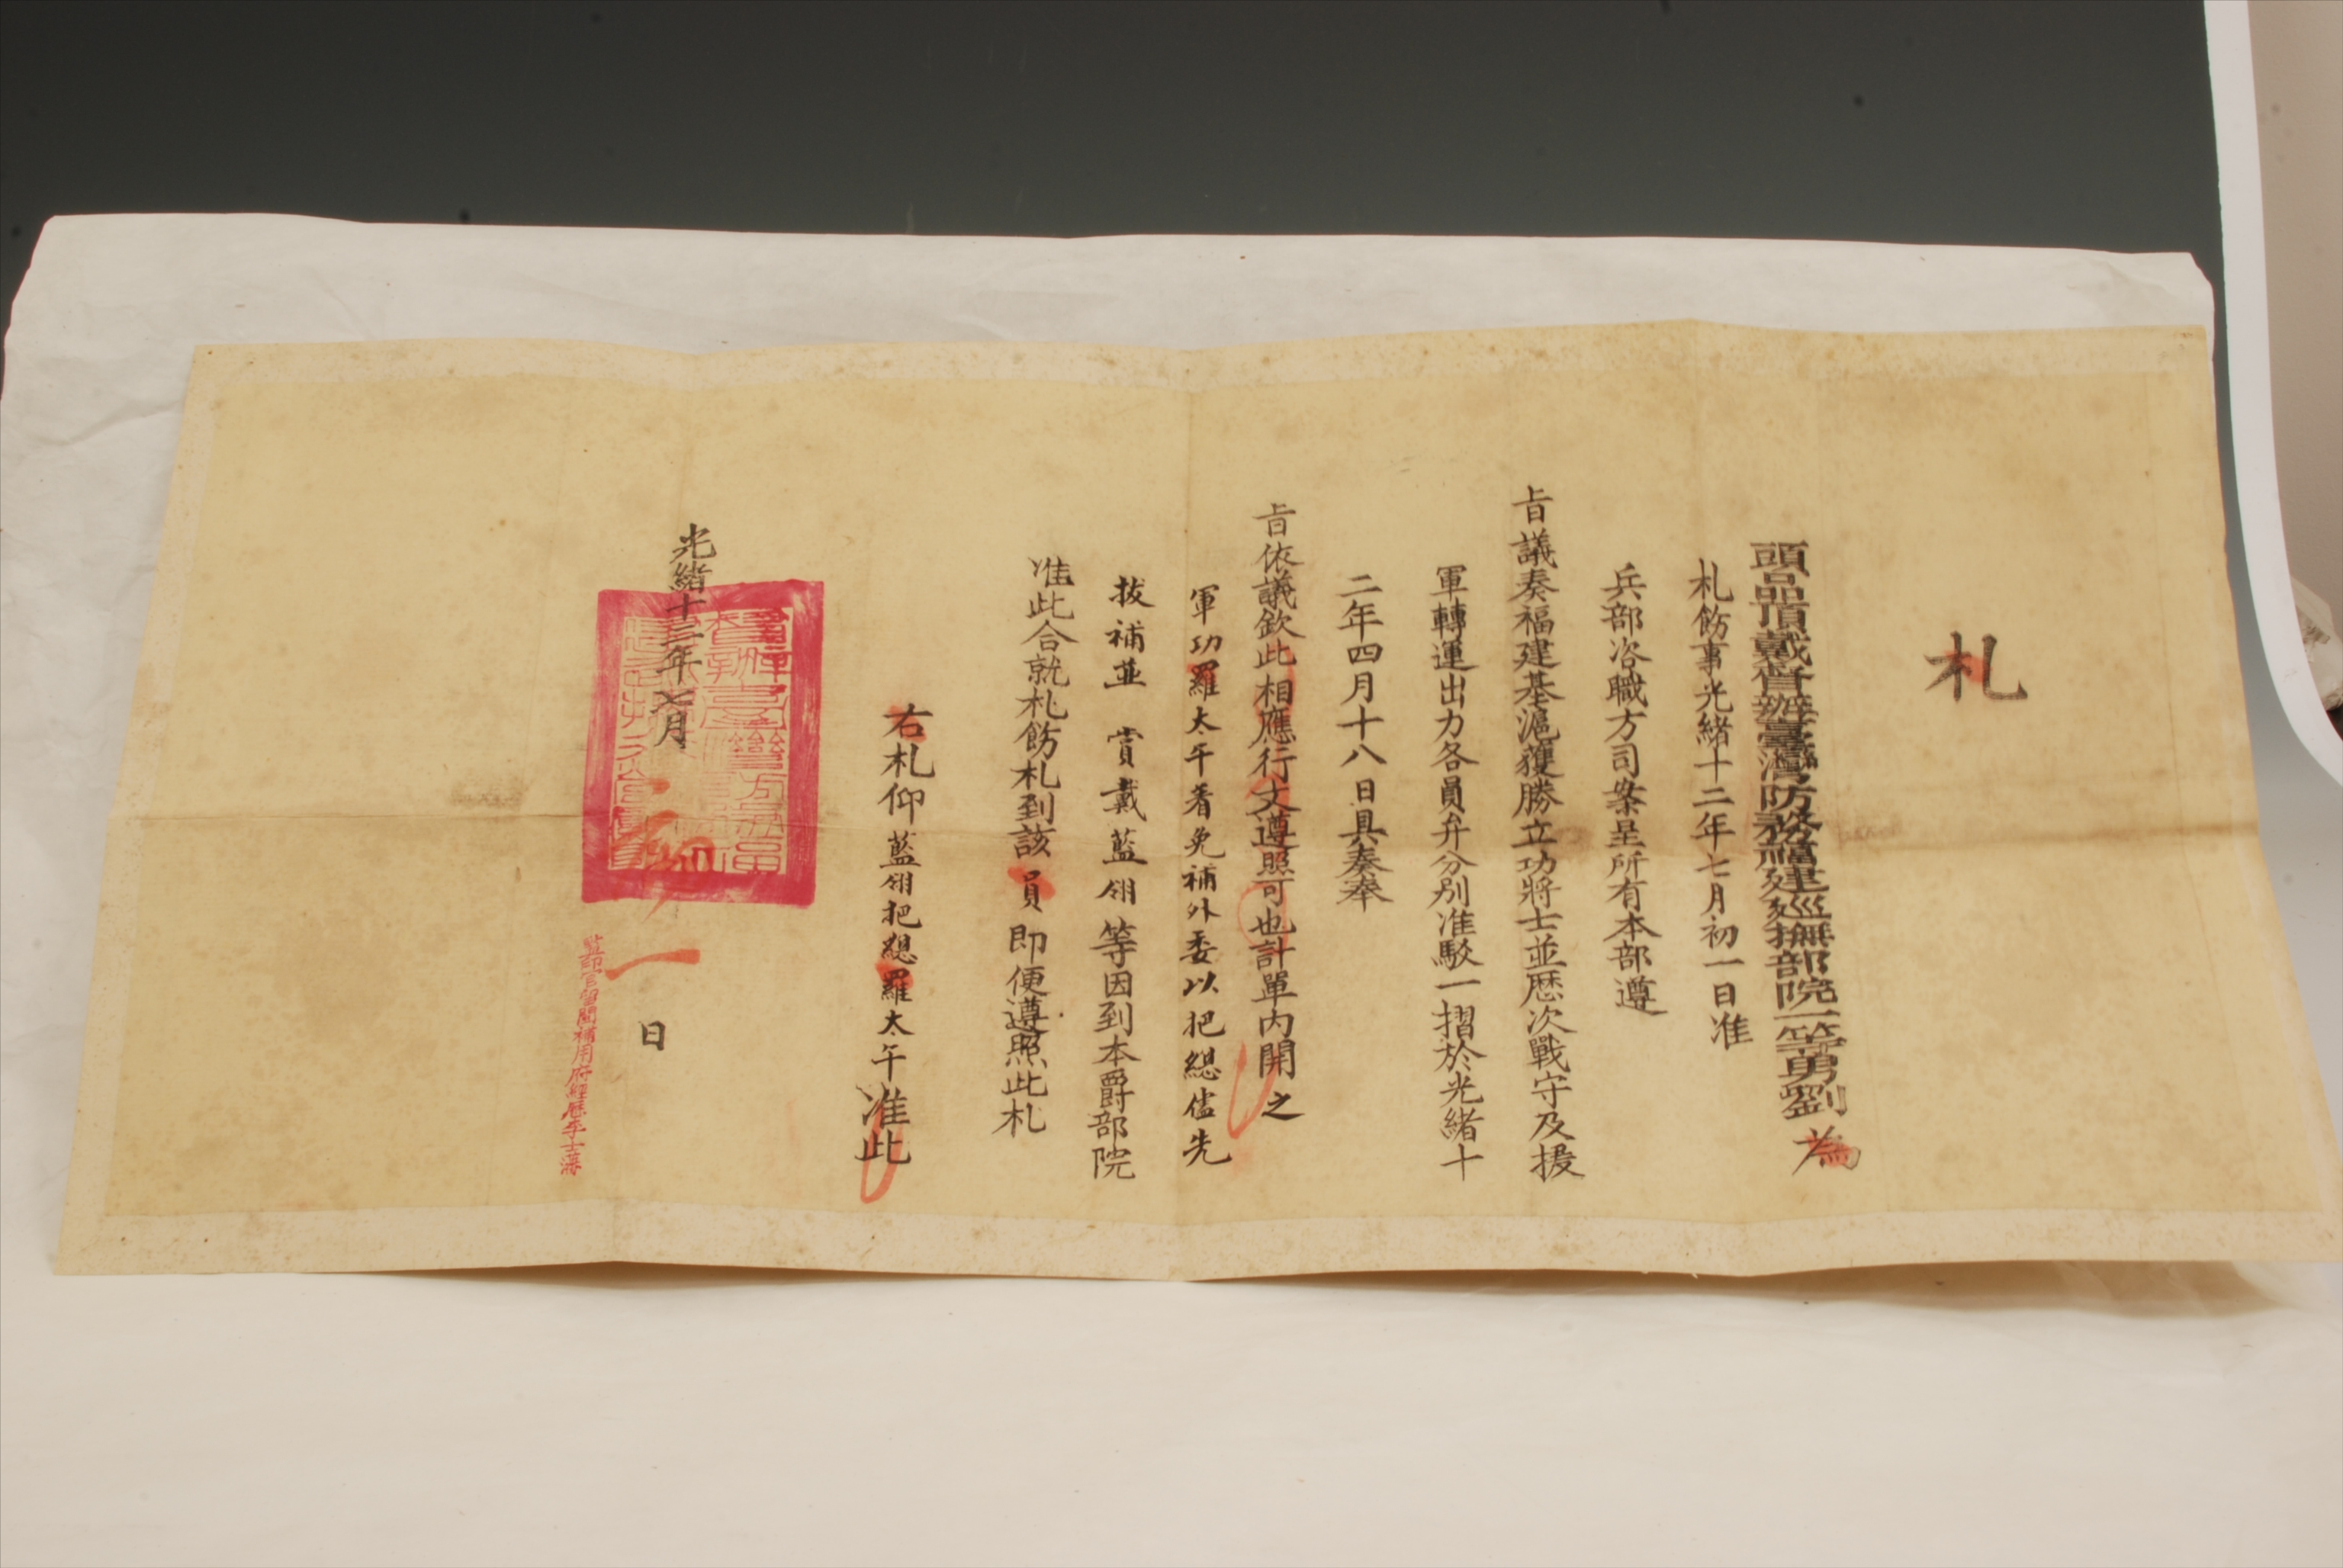 札
頭品頂戴督辦臺灣防務福建巡撫部院一等男劉為
札飭事光緒十二年七月初一日准
兵部咨職方司案呈所有本部遵
旨議奏福建基滬獲勝立功將士並歷次戰守及援
軍轉運出力各員弁分別准駁一摺於光緒十
二年四月十八日具奏奉
旨依議欽此相應行文遵照可也計單內開之
軍功羅太午著免補外委以把緦儘先
拔補並賞戴藍翎等因到本爵部院
准此合就札飭札到該員即便遵照此札
右札仰藍翎把緦羅太午准此
光緒十二年七月
初一日
監印官留閩補用府經歷李士